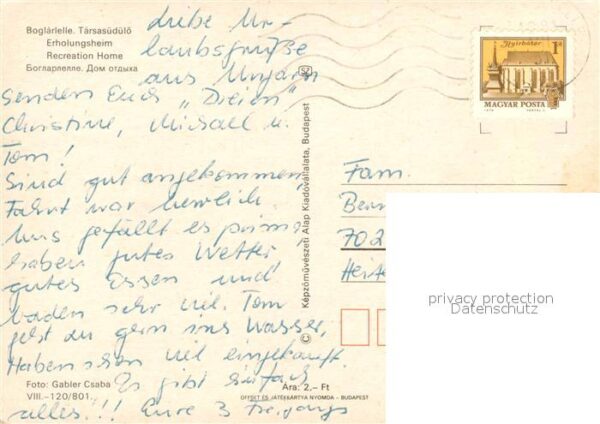 Boglárlelle. Társasüdülő
Erholungsheim
Recreation Home
Богларлелле. Дом отдыха
Liebe Ur-
laubsgrüße
aus Ungarn
senden Euch „Dreien"
Christine, Michael u.
Tom!
Sind gut angekommen,
Fahrt war herrlich.
Uns gefällt es prima,
haben gutes Wetter,
gutes Essen und
baden sehr viel. Tom
geht zu gern ins Wasser,
Haben schon viel eingekauft.
Es gibt einfach
alles!!! Eure 3
Foto: Gabler Csaba
VIII.-120/801.
Ára: 2,- Ft
OFFSET ÉS JÁTÉKKÁRTYA NYOMDA - BUDAPEST
Képzőművészeti Alap Kiadóvállalata, Budapest
52
Nyírbátor
1 Ft
MAGYAR POSTA
Fam.
702
privacy protection
Datenschutz